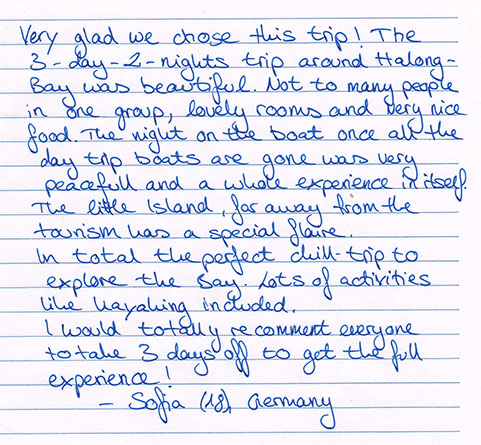 Very glad we chose this trip! The
3-day-2-nights trip around Halong-
Bay was beautiful. Not to many people
in one group, lovely rooms and very nice
food. The night on the boat once all the
day trip boats are gone was very
peacefull and a whole experience in itself.
The little Island, far away from the
tourism has a special flaire.
In total the perfect chill-trip to
explore the Bay. Lots of activities
like kayaking included.
I would totally recomment everyone
to take 3 days off to get the full
experience!
- Sofia (18), Germany